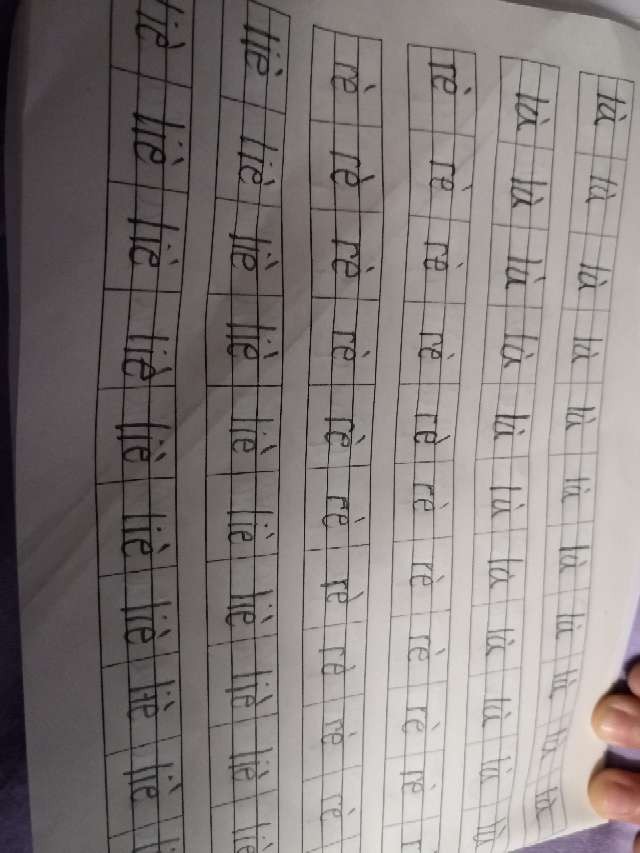 là là là là là là là là là là là
là là là là là là là là là là là
rè rè rè rè rè rè rè rè rè rè
rè rè rè rè rè rè rè rè rè rè
liè liè liè liè liè liè liè liè liè liè
liè liè liè liè liè liè liè liè liè